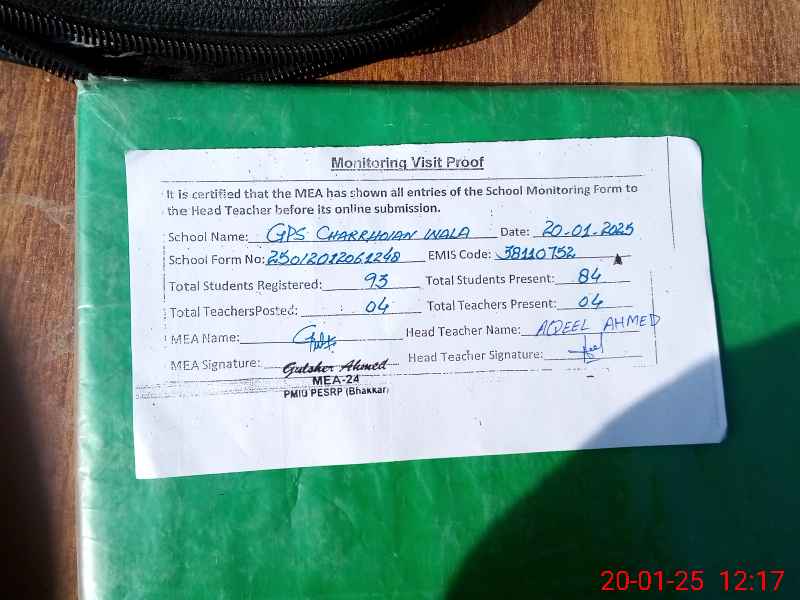 Monitoring Visit Proof
It is certified that the MEA has shown all entries of the School Monitoring Form to
the Head Teacher before its online submission.
School Name: GPS CHARRHOIAN WALA Date: 20-01-2025
School Form No: 25012012061248 EMIS Code: 38110752
Total Students Registered: 93 Total Students Present: 84
Total TeachersPosted: 04 Total Teachers Present: 04
MEA Name: Head Teacher Name: AQEEL AHMED
MEA Signature: Gulsher Ahmed Head Teacher Signature:
MEA-24
PMIU PESRP (Bhakkar)
20-01-25 12:17